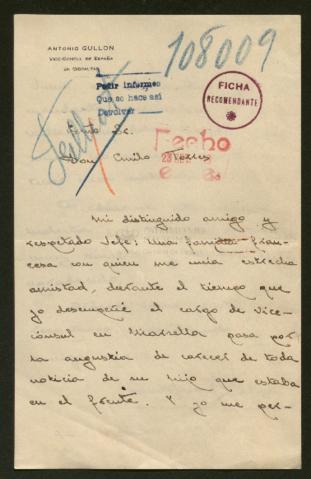 ANTONIO GULLON
VICE-CONSUL DE ESPAÑA
EN GIBRALTAR
108009
Pedir informes
Que se hace así
Devolver
FICHA
RECOMENDANTE
Fecho
Don Emilio Torres
Mi distinguido amigo y
respetado Jefe: Una familia fran-
cesa con quien me unía estrecha
amistad, durante el tiempo que
yo desempeñé el cargo de Vice-
cónsul en Marsella pasa por
la angustia de carecer de toda
noticia de su hijo que estaba
en el frente. Y yo me per-